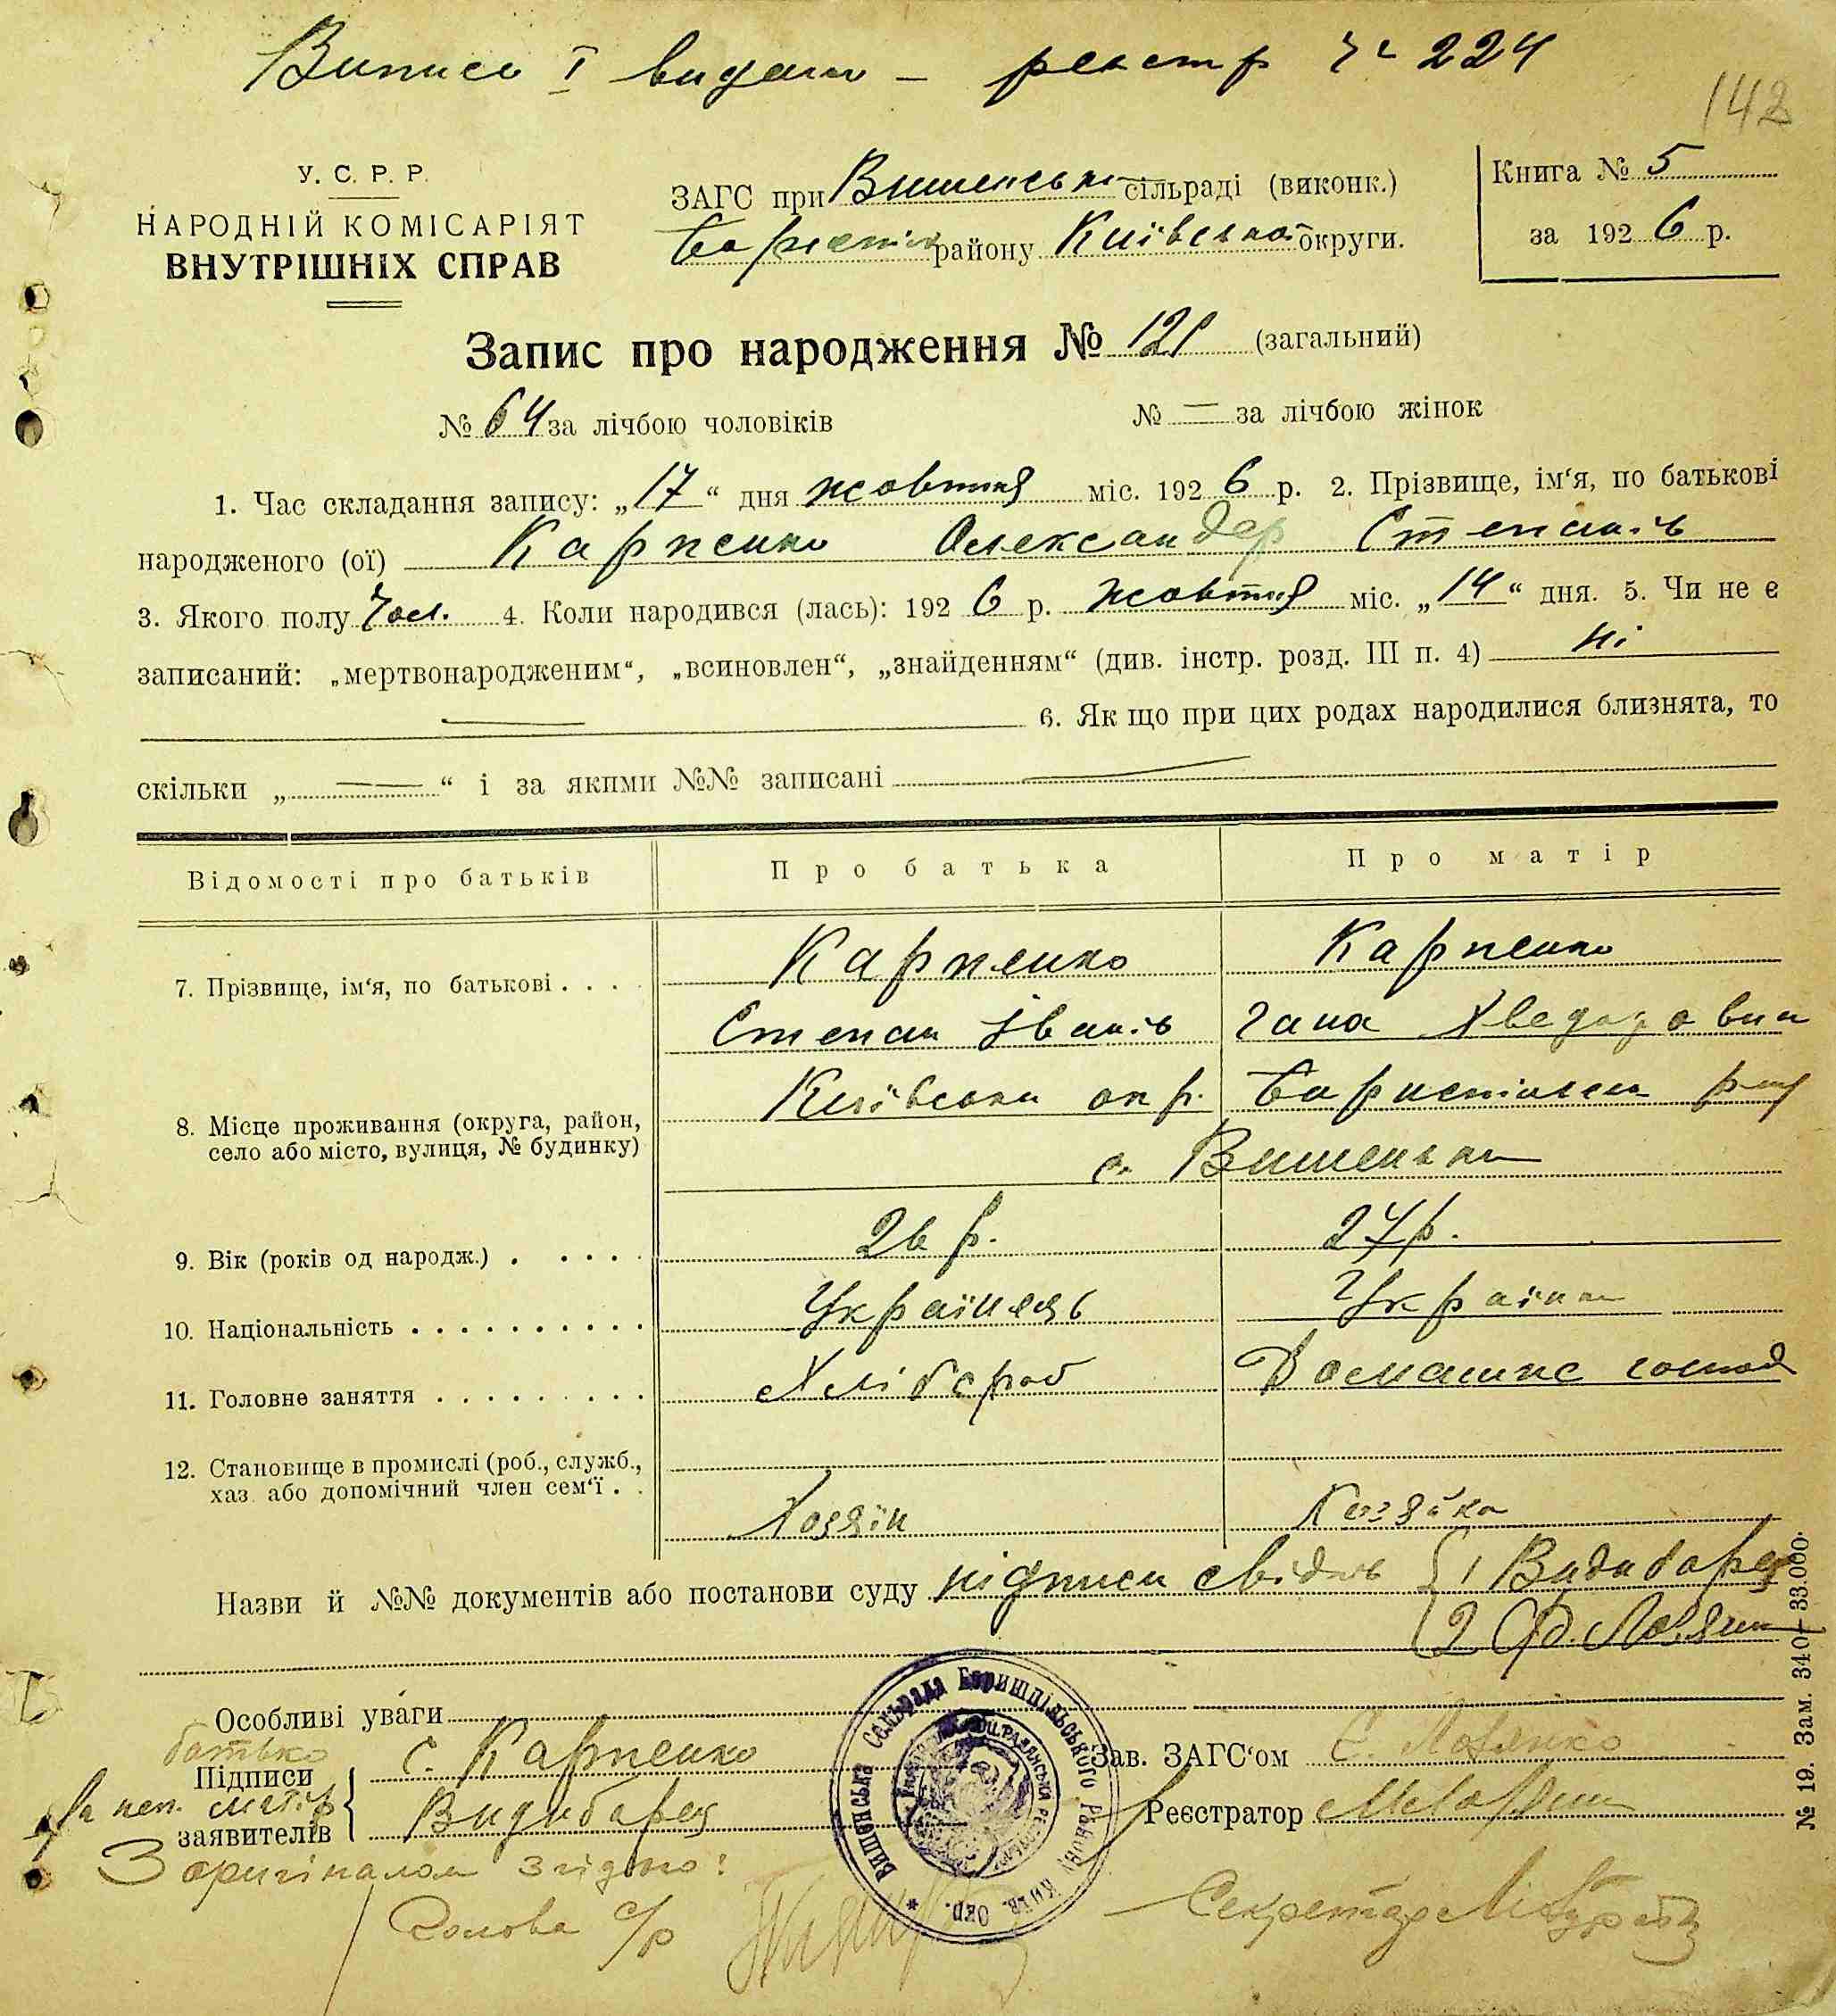 Випись I видано — реєстр № 224
142
У. С. Р. Р.
НАРОДНІЙ КОМІСАРІЯТ
ВНУТРІШНІХ СПРАВ
ЗАГС при Вишенській сільраді (виконк.)
району Київської округи.
Книга № 5
за 1926 р.
Запис про народження № 121 (загальний)
№ 64 за лічбою чоловіків № — за лічбою жінок
1. Час складання запису: „17“ дня жовтня міс. 1926 р. 2. Прізвище, ім‘я, по батькові
народженого (ої) Карпенко Олександер Степанів
3. Якого полу Чол. 4. Коли народився (лась): 1926 р. жовтня міс. „14“ дня. 5. Чи не є
записаний: „мертвонародженим“, „всиновлен“, „знайденням“ (див. інстр. розд. III п. 4) ні
— 6. Як що при цих родах народилися близнята, то
скільки „—“ і за якими №№ записані —
Відомості про батьків Про батька Про матір
7. Прізвище, ім‘я, по батькові . . . . Карпенко Карпенко
Степан Іванів Гана Хведоровна
8. Місце проживання (округа, район, Київська окр. Бориспільськ р-ну
село або місто, вулиця, № будинку) с. Вишеньки
9. Вік (років од народж.) . . . . . 26 р. 27 р.
10. Національність . . . . . . . . . . Українець Українка
11. Головне заняття . . . . . . . . . Хлібороб Домашнє господ
12. Становище в промислі (роб., служб.,
хаз. або допомічний член сем‘ї . . Хозяїн Хозяйка
Назви й №№ документів або постанови суду підписи свідків { 1 Видиборец
2 Ф.
Особливі уваги
батько
Підписи
матір
заявителів
с. Карпенко
Видиборец
Зав. ЗАГС‘ом
Реєстратор
Вишенська Сельрада Боришпільського Району Київ. Окр.
З оригіналом згідно:
Голова с/р
Секретар
№ 19. Зам. 340—33.000.